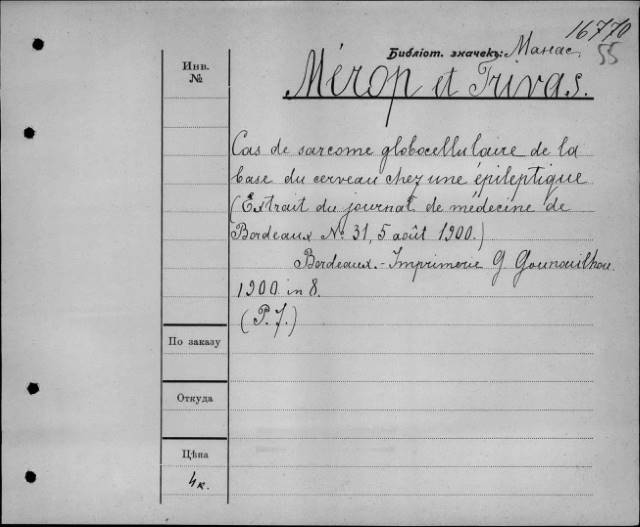 16770
Библіот. значекъ: Манас. 55
Инв.
№
Mérop et Trivas.
Cas de sarcome globocellulaire de la
base du cerveau chez une épileptique
(Extrait du journal de médecine de
Bordeaux No 31, 5 août 1900.)
Bordeaux.- Imprimerie G Gounouilhou.
1900. in 8.
(P. 7.)
По заказу
Откуда
Цѣна
4к.